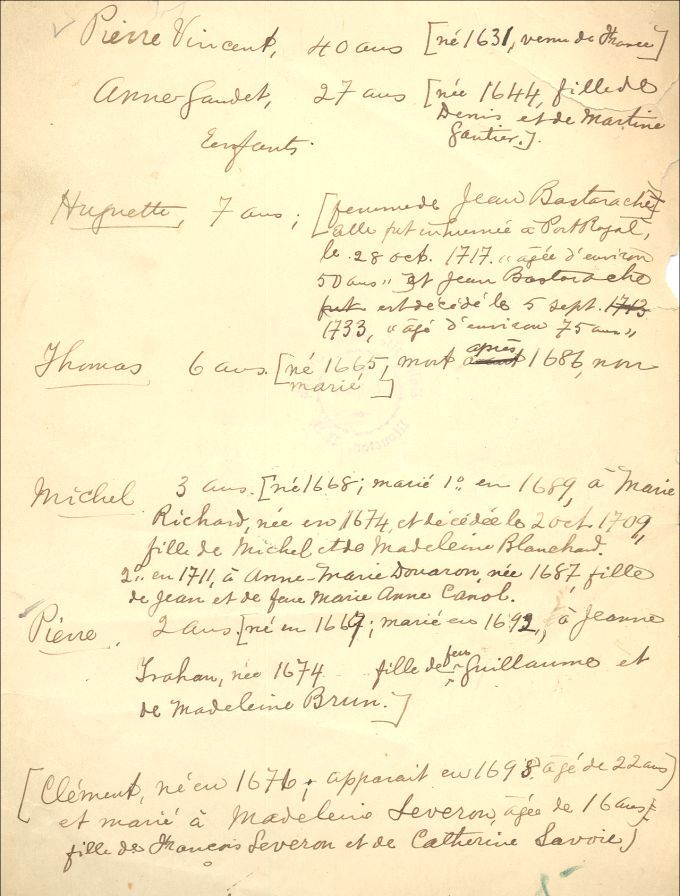 Pierre Vincent, 40 ans [né 1631, venu de France]
Anne Gaudet, 27 ans [née 1644, fille de
Denis et de Martine
Gautier.]
Enfants.
Huguette, 7 ans; [femme de Jean Bastarache
elle fut inhumée à Port Royal,
le 28 oct. 1717. "âgée d'environ
50 ans" et Jean Bastarache
fut est décédé le 5 sept. 1713
1733, "âgé d'environ 75 ans"
Thomas 6 ans. [né 1665, mort avant après 1686, non
marié]
Michel 3 ans. [né 1668; marié 1o en 1689, à Marie
Richard, née en 1674, et décédée le 2 oct. 1709,
fille de Michel et de Madeleine Blanchard.
2o en 1711, à Anne-Marie Douaron, née 1687, fille
de Jean et de feue Marie Anne Canol.
Pierre, 2 ans. [né en 1667; marié en 1692, à Jeanne
Trahan, née 1674 fille de feu Guillaume et
de Madeleine Brun.]
[Clément, né en 1676; apparait en 1698 âgé de 22 ans)
et marié à Madeleine Leveron, âgée de 16 ans,
fille de François Leveron et de Catherine Savoie)